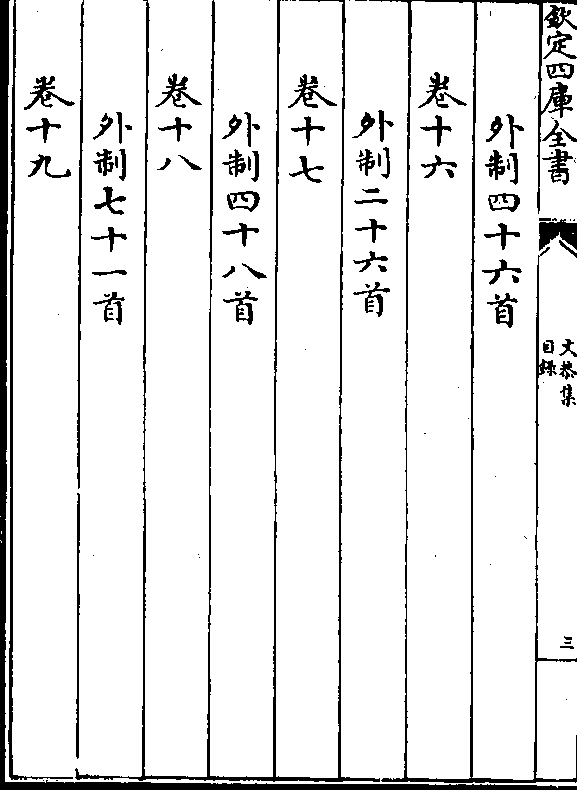 欽定四庫全書
文恭集
目錄
三
外制四十六首
卷十六
外制二十六首
卷十七
外制四十八首
卷十八
外制七十一首
卷十九